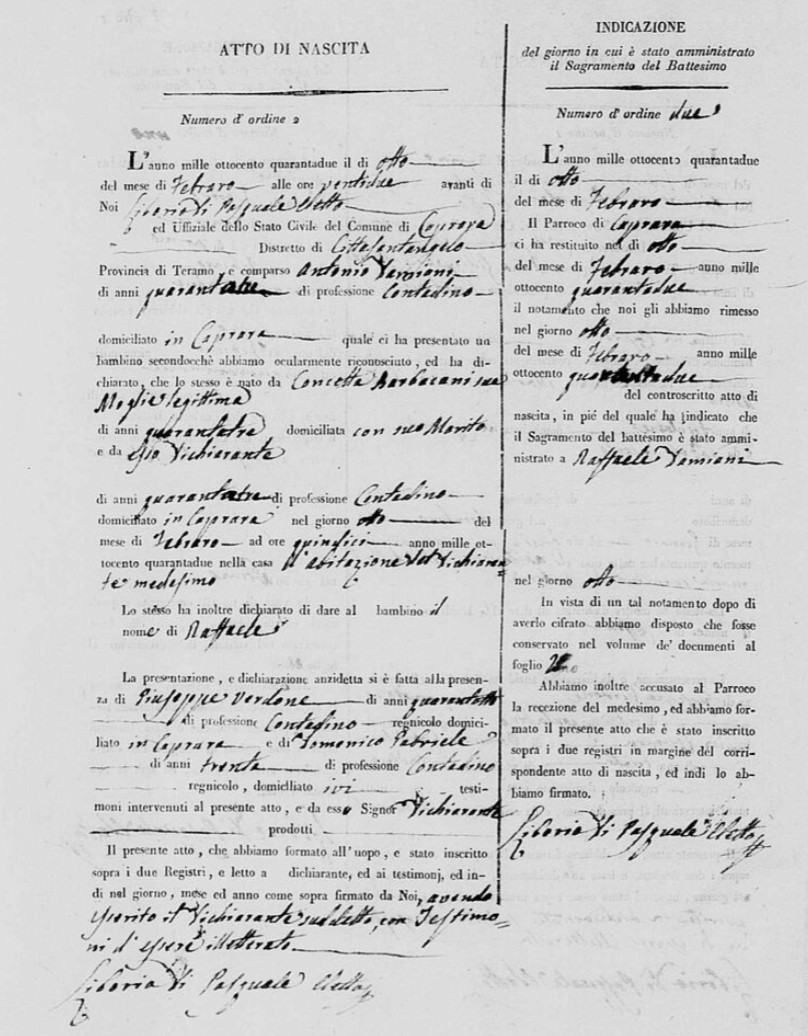 ATTO DI NASCITA
Numero d' ordine 2
L'anno mille ottocento quarantadue il di otto
del mese di Febraro alle ore ventidue avanti di
Noi Liborio di Pasquale Eletto
ed Uffiziale dello Stato Civile del Comune di Caprara
Distretto di Cittasantangelo
Provincia di Teramo, e comparso Antonio Damiani
di anni quarantatre di professione Contadino
domiciliato in Caprara quale ci ha presentato un
bambino secondocchè abbiamo ocularmente riconosciuto, ed ha di-
chiarato, che lo stesso è nato da Concetta Barbacani sua
Moglie legittima
di anni quarantatre domiciliata con suo Marito
e da esso Dichiarante
di anni quarantatre di professione Contadino
domiciliato in Caprara nel giorno otto del
mese di Febraro ad ore quindici anno mille ot-
tocento quarantadue nella casa d'abitazione del Dichiaran
te medesimo
Lo stesso ha inoltre dichiarato di dare al bambino il
nome di Raffaele
La presentazione, e dichiarazione anzidetta si è fatta alla presen-
za di Giuseppe Verdone di anni quarantotto
di professione Contadino regnicolo domici-
liato in Caprara e di Domenico Gabriele
di anni trenta di professione Contadino
regnicolo, domiciliato ivi testi-
moni intervenuti al presente atto, e da esso Signor Dichiarante
prodotti
Il presente atto, che abbiamo formato all'uopo, e stato inscritto
sopra i due Registri, e letto a dichiarante, ed ai testimonj, ed in-
di nel giorno, mese ed anno come sopra firmato da Noi, avendo
asserito il Dichiarante suddetto, con Testimo=
ni d'essere illetterato
Liborio di Pasquale Eletto
INDICAZIONE
del giorno in cui è stato amministrato
il Sagramento del Battesimo
Numero d' ordine due
L'anno mille ottocento quarantadue
il di otto
del mese di Febraro
Il Parroco di Caprara
ci ha restituito nel di otto
del mese di Febraro anno mille
ottocento quarantadue
il notamento che noi gli abbiamo rimesso
nel giorno otto
del mese di Febraro anno mille
ottocento quarantadue
del controscritto atto di
nascita, in piè del quale ha indicato che
il Sagramento del battesimo è stato ammi-
nistrato a Raffaele Damiani
nel giorno otto
In vista di un tal notamento dopo di
averlo cifrato abbiamo disposto che fosse
conservato nel volume de' documenti al
foglio
Abbiamo inoltre accusato al Parroco
la recezione del medesimo, ed abbiamo for-
mato il presente atto che è stato inscritto
sopra i due registri in margine del corri-
spondente atto di nascita, ed indi lo ab-
biamo firmato.
Liborio di Pasquale Eletto